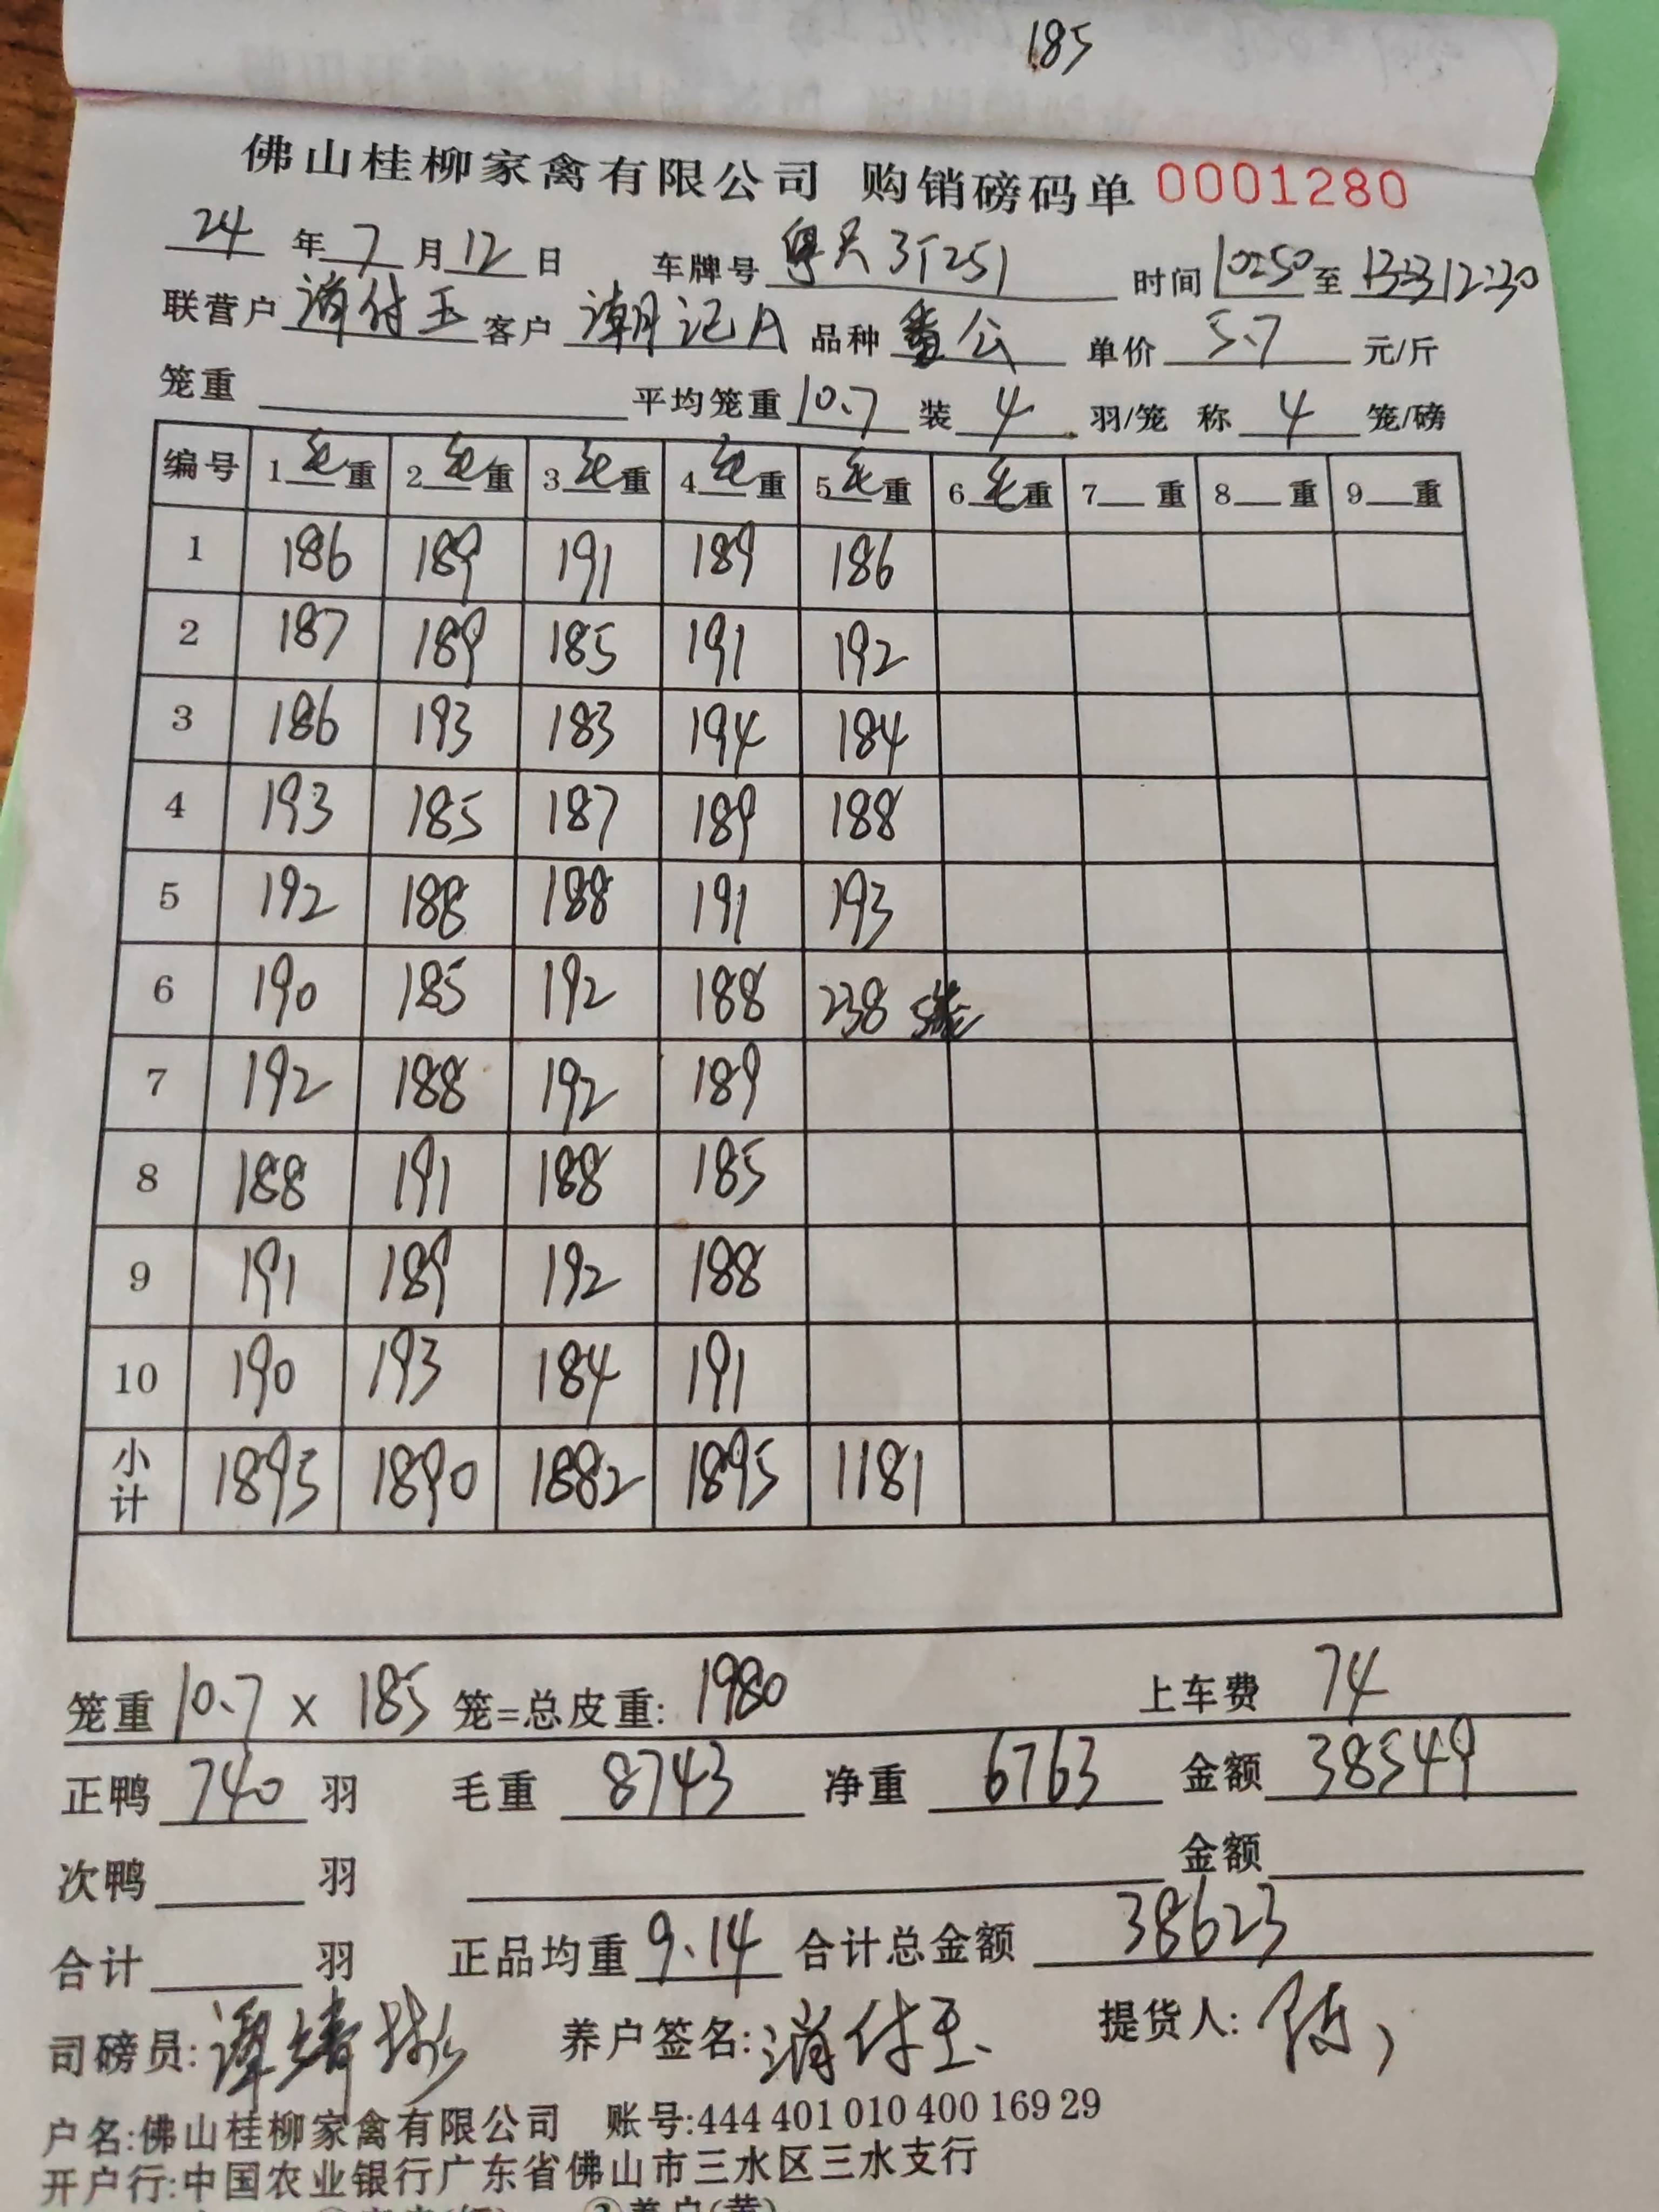 185
佛山桂柳家禽有限公司 购销磅码单 0001280
24 年 7 月 12 日 车牌号 3T251 时间 10:50 至 12:30
联营户 付玉 客户 潮记A 品种 番公 单价 5.7 元/斤
笼重 平均笼重 10.7 装 4 羽/笼 称 4 笼/磅
编号 1毛重 2毛重 3毛重 4毛重 5毛重 6毛重 7 重 8 重 9 重
1 186 189 191 189 186
2 187 189 185 191 192
3 186 193 183 194 184
4 193 185 187 189 188
5 192 188 188 191 193
6 190 185 192 188 238 5笼
7 192 188 192 189
8 188 191 188 185
9 191 189 192 188
10 190 193 184 191
小计 1895 1890 1882 1895 1181
笼重 10.7 × 185 笼=总皮重: 1980 上车费 74
正鸭 740 羽 毛重 8743 净重 6763 金额 38549
次鸭 羽 金额
合计 羽 正品均重 9.14 合计总金额 38623
司磅员: 养户签名: 付玉 提货人: 陈
户名:佛山桂柳家禽有限公司 账号:444 401 010 400 169 29
开户行:中国农业银行广东省佛山市三水区三水支行